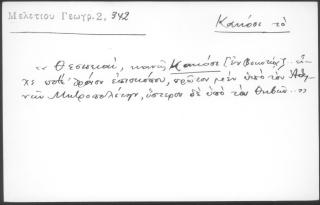 Μελετίου Γεωγρ.2, 342
Κακόσι τὸ
« Θεσπιαί, κοινῶς Κακόσι [ἐν Βοιωτίᾳ] .. εἶ-
χε ποτὲ θρόνον ἐπισκόπου, πρῶτον μὲν ὑπὸ τὸν Ἀθη-
νῶν Μητροπολίτην, ὕστερον δὲ ὑπὸ τὸν Θηβῶν ... »